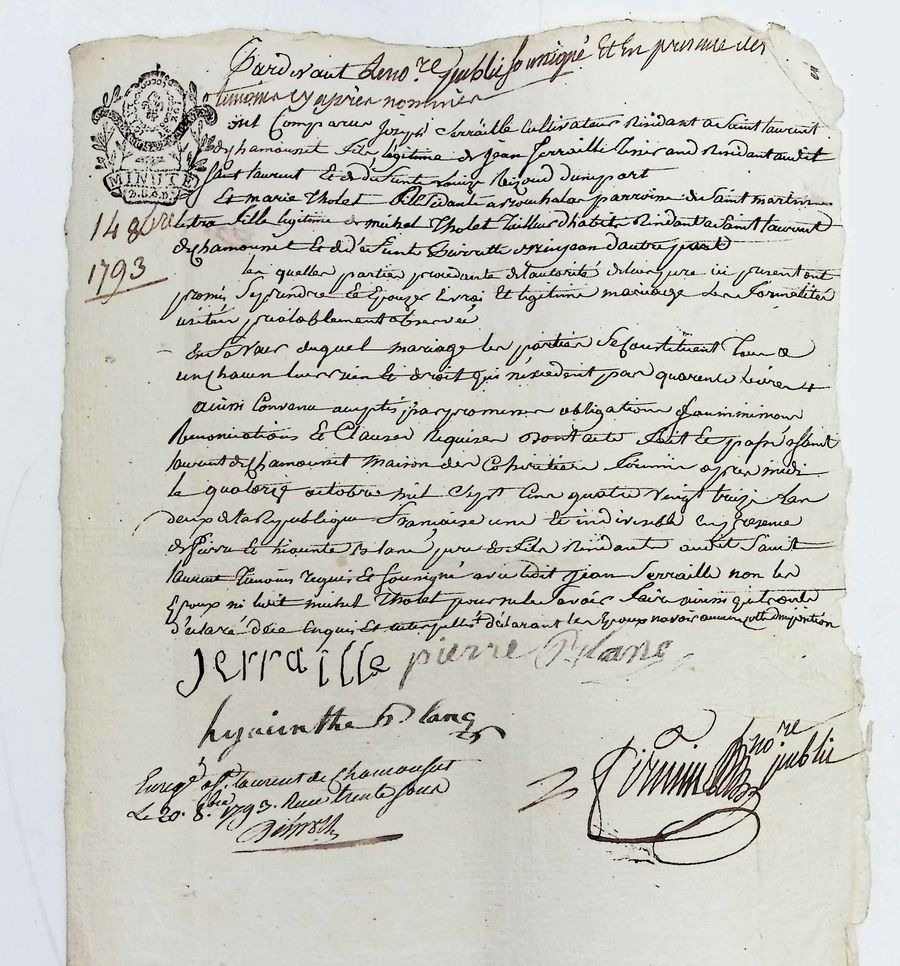 Pardevant Le no.re public soussigné Et En presence des
temoins cy après nommés
MINUTE
14 8bre
1793
ont Comparus joseph Serraille Cultivateur Residant a Saint laurent
de chamousset fils legitime de jean Serraille Residant audit
Saint laurent Et de defunte d'une part
Et marie tholet Residante a parroisse de Saint martin
fille legitime de michel tholet tailleur d'habits Residant a Saint laurent
de chamousset Et de defunte Pierrette d'autre part
lesquelles parties procedantes de l'autorité ont
promis Se prendre Et Epouser En vrai Et legitime mariage les formalités
usitées préalablement observées
En faveur duquel mariage les parties Se Constituent tous a
un chacun leurs biens Et droits qui n'excedent pas quarente livres
ainsi Convenu accepté par promesses obligations
Renonciations Et Clauses Requises dont acte fait Et passé a Saint
laurent de chamousset maison des après midi
le quatorze octobre mil Sept Cent quatre vingt treize l'an
deux de la Republique francaise une Et indivisible En presence
de pierre Et hiacinte Blanc pere Et fils Residants audit Saint
laurent temoins requis Et Soussignés avec ledit jean Serraille non les
Epoux ni ledit michel tholet pour ne le Savoir faire ainsi qu'ils ont
déclaré de ce Enquis Et interpellés déclarant les Epoux n'avoir aucun
jerraille pierre Blanc
hyacinthe Blanc
no.re public
Enreg.é a St. laurent de Chamousset
Le 20. 8.bre 1793. Recu trente sous